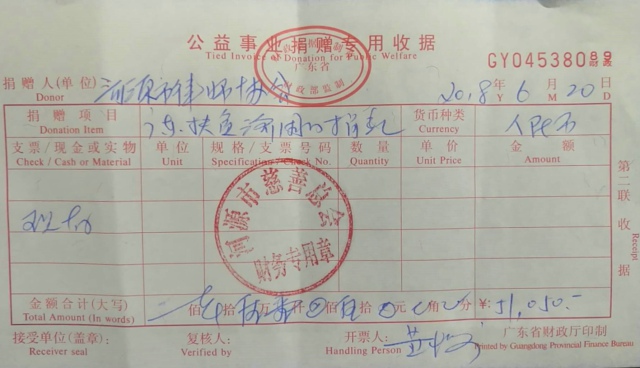 公益事业捐赠专用收据
Tied Invoice of Donation for Public Welfare
广东省
财政部监制
GY04538089
捐赠人(单位) 河源市律师协会 2018年6月20日
Donor Y M D
捐赠项目 扶贫济困的捐款 货币种类 人民币
Donation Item Currency
支票/现金或实物 单位 规格/支票号码 数量 单价 金额
Check / Cash or Material Unit Specification / Check No. Quantity Unit Price Amount
河源市慈善总会
财务专用章
第二联 收据
Receipt
金额合计(大写) 佰 拾 万 仟 佰 拾 元 角 分 ¥: 51,050.-
Total Amount (In words)
接受单位(盖章): 复核人: 开票人: 广东省财政厅印制
Receiver seal Verified by Handling Person Printed by Guangdong Provincial Finance Bureau